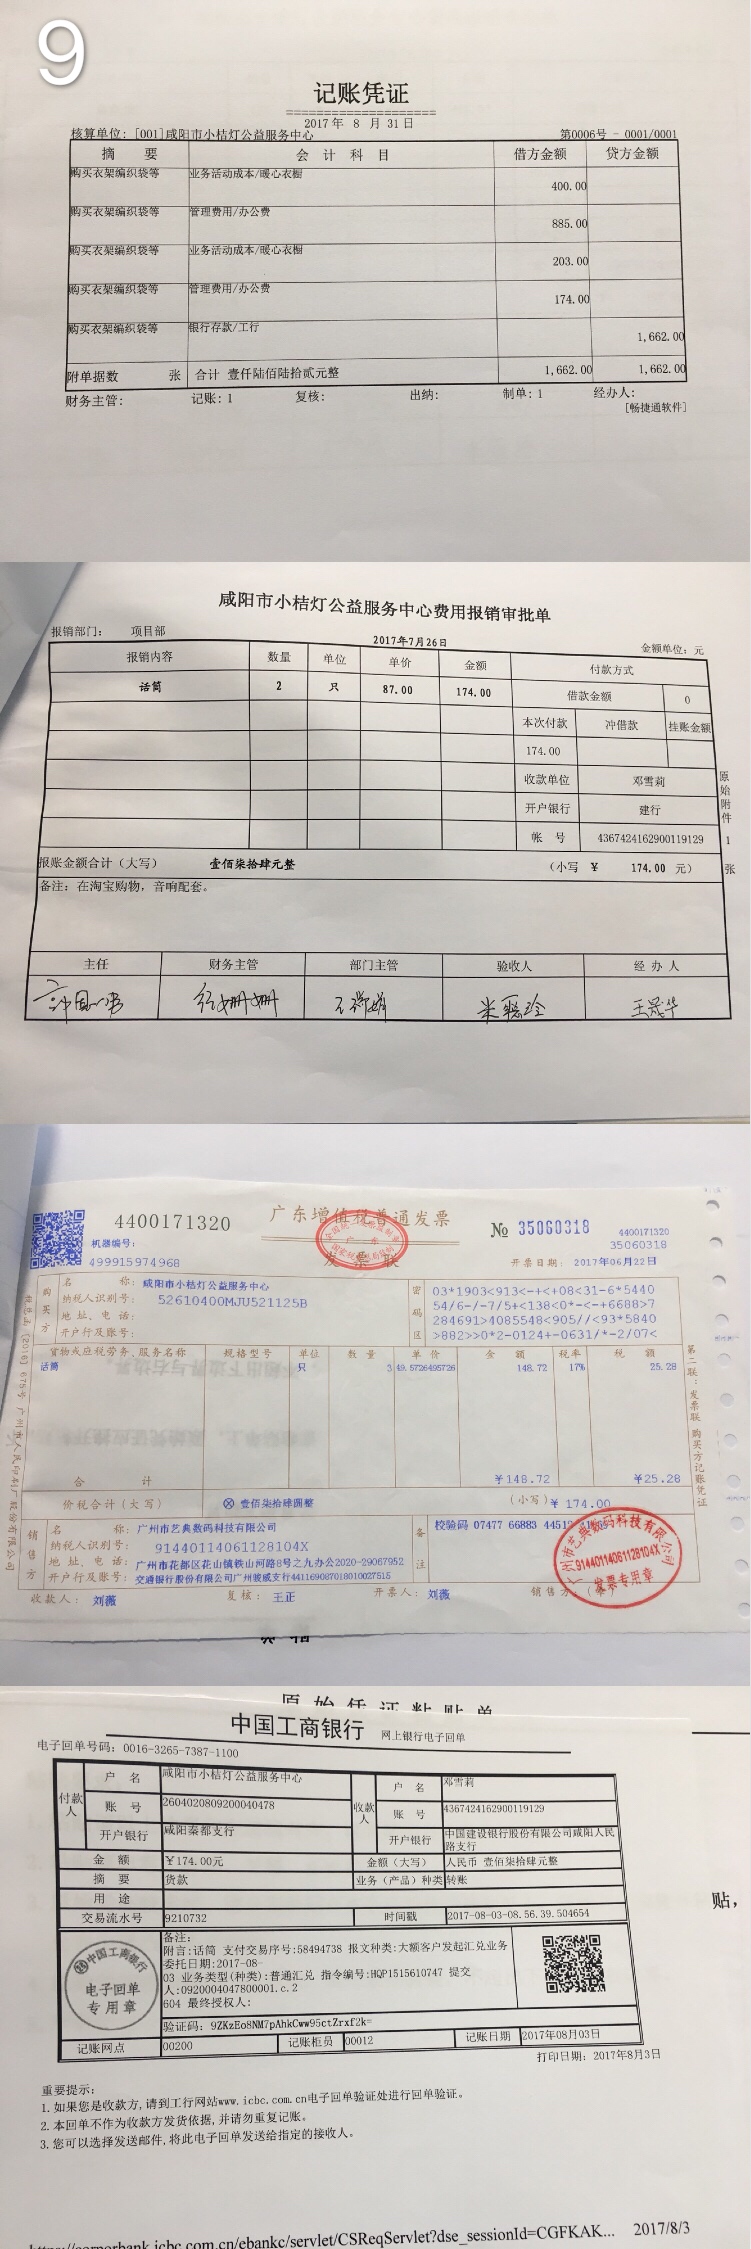 9
记账凭证
2017 年 8 月 31 日
核算单位: [001]咸阳市小桔灯公益服务中心 第0006号 - 0001/0001
摘 要 会 计 科 目 借方金额 贷方金额
购买衣架编织袋等 业务活动成本/暖心衣橱 400.00
购买衣架编织袋等 管理费用/办公费 885.00
购买衣架编织袋等 业务活动成本/暖心衣橱 203.00
购买衣架编织袋等 管理费用/办公费 174.00
购买衣架编织袋等 银行存款/工行 1,662.00
附单据数 张 合计 壹仟陆佰陆拾贰元整 1,662.00 1,662.00
财务主管: 记账: 1 复核: 出纳: 制单: 1 经办人:
[畅捷通软件]
咸阳市小桔灯公益服务中心费用报销审批单
报销部门: 项目部 2017年7月26日 金额单位: 元
报销内容 数量 单位 单价 金额 付款方式
话筒 2 只 87.00 174.00 借款金额 0
本次付款 冲借款 挂账金额
174.00
收款单位 邓雪莉
开户银行 建行
帐 号 4367424162900119129
原始附件 1 张
报账金额合计（大写） 壹佰柒拾肆元整 （小写 ¥ 174.00 元）
备注: 在淘宝购物，音响配套。
主任 财务主管 部门主管 验收人 经 办 人
4400171320 广东增值税普通发票 № 35060318 4400171320
35060318
机器编号:
499915974968 发 票 联 开票日期: 2017年06月22日
购买方 名 称: 咸阳市小桔灯公益服务中心
纳税人识别号: 52610400MJU521125B
地 址、电 话:
开户行及账号:
密码区 03*1903<913<-+<+08<31-6*5440
54/6-/-7/5+<138<0*-<-+6688>7
284691>4085548<905//<93*5840
>882>>0*2-0124+-0631/*-2/07<
货物或应税劳务、服务名称 规格型号 单位 数 量 单 价 金 额 税率 税 额
话筒 只 3 49.5726495726 148.72 17% 25.28
合 计 ¥148.72 ¥25.28
价税合计（大写） ⊗ 壹佰柒拾肆圆整 （小写）¥ 174.00
销售方 名 称: 广州市艺典数码科技有限公司
纳税人识别号: 91440114061128104X
地 址、电 话: 广州市花都区花山镇铁山河路8号之九办公2020-29067952
开户行及账号: 交通银行股份有限公司广州骏威支行441169087018010027515
备注 校验码 07477 66883 44512
收款人: 刘薇 复核: 王正 开票人: 刘薇 销售方: (章)
第二联: 发票联 购买方记账凭证
广州市艺典数码科技有限公司
91440114061128104X
发票专用章
原 始 凭 证 粘 贴 单
中国工商银行 网上银行电子回单
电子回单号码: 0016-3265-7387-1100
付款人 户 名 咸阳市小桔灯公益服务中心 收款人 户 名 邓雪莉
账 号 2604020809200040478 账 号 4367424162900119129
开户银行 咸阳秦都支行 开户银行 中国建设银行股份有限公司咸阳人民路支行
金 额 ¥174.00元 金额（大写） 人民币 壹佰柒拾肆元整
摘 要 货款 业务（产品）种类 转账
用 途
交易流水号 9210732 时间戳 2017-08-03-08.56.39.504654
中国工商银行
电子回单
专用章
备注:
附言:话筒 支付交易序号:58494738 报文种类:大额客户发起汇兑业务
委托日期:2017-08-
03 业务类型(种类):普通汇兑 指令编号:HQP1515610747 提交
人:0920004047800001.c.2
604 最终授权人:
验证码: 9ZKzEo8NM7pAhkCww95ctZrxf2k=
记账网点 00200 记账柜员 00012 记账日期 2017年08月03日
打印日期: 2017年8月3日
贴，
重要提示:
1. 如果您是收款方, 请到工行网站www.icbc.com.cn电子回单验证处进行回单验证。
2. 本回单不作为收款方发货依据, 并请勿重复记账。
3. 您可以选择发送邮件, 将此电子回单发送给指定的接收人。
https://corporbank.icbc.com.cn/ebankc/servlet/CSReqServlet?dse_sessionId=CGFKAK... 2017/8/3